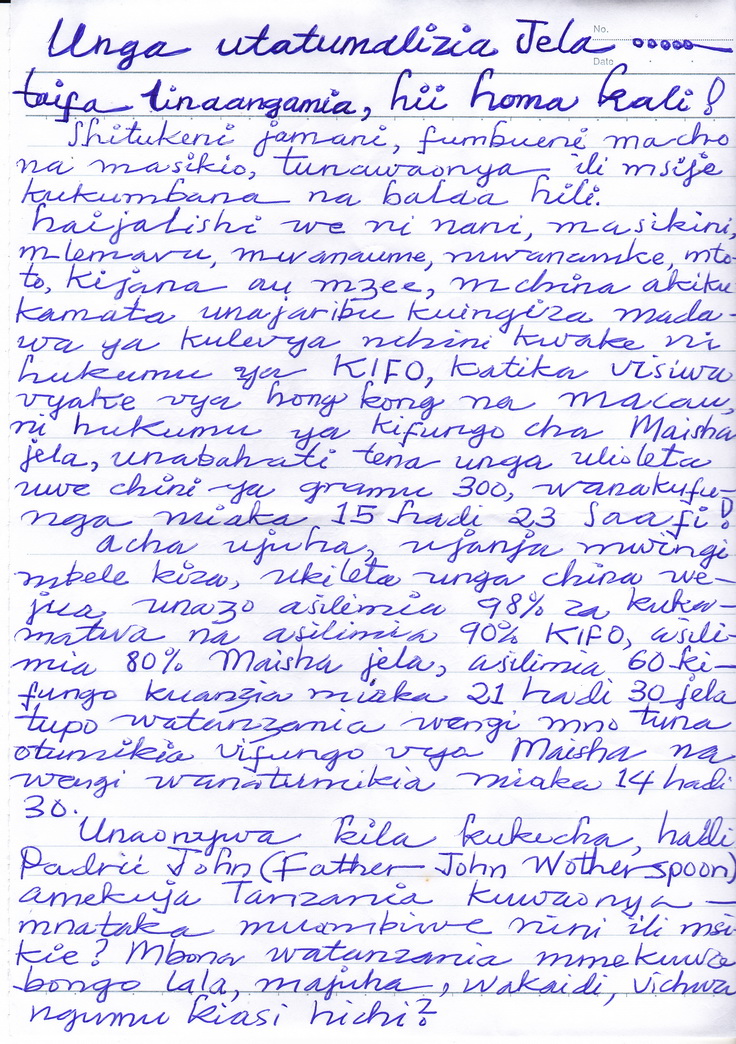 No.
Date
Unga utatumalizia Jela .....
taifa linaangamia, hii homa kali!
Shitukeni jamani, fumbueni macho
na masikio, tunawaonya ili msije
kukumbana na balaa hili.
haijalishi we ni nani, masikini,
mlemavu, mwanaume, mwanamke, mto-
to, kijana au mzee, mchina akiku
kamata unajaribu kuingiza mada-
wa ya kulevya nchini kwake ni
hukumu ya KIFO, katika visiwa
vyake vya hong kong na macau,
ni hukumu ya kifungo cha Maisha
jela, unabahati tena unga ulioleta
uwe chini ya gramu 300, wanakufu-
nga miaka 15 hadi 23 Saafi!
acha ujuha, ujanja mwingi
mbele kiza, ukileta unga china we-
jua unazo asilimia 98% za kuka-
matwa na asilimia 90% KIFO, asili-
mia 80% Maisha jela, asilimia 60 ki-
fungo kuanzia miaka 21 hadi 30 jela
tupo watanzania wengi mno tuna
otumikia vifungo vya Maisha na
wengi wanatumikia miaka 14 hadi
30.
Unaonywa kila kukicha, hadi
Padrii John (Father John Wotherspoon)
amekuja Tanzania kuwaonya -
mnataka muombiwe nini ili msi-
kie? Mbona watanzania mmekuwa
bongo lala, majuha, wakaidi, vichwa
ngumu kiasi hichi?